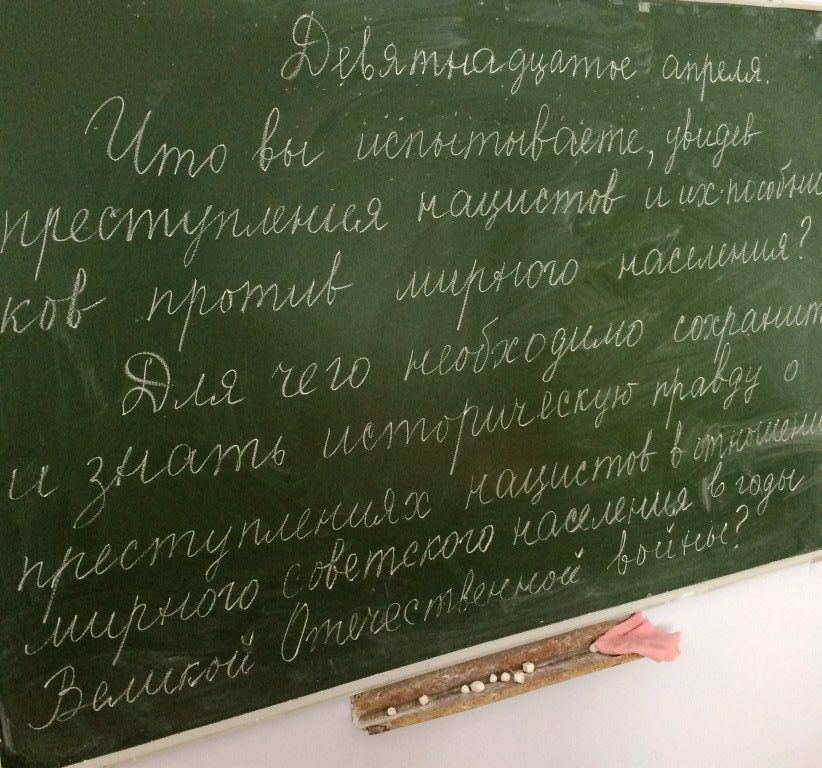 Девятнадцатое апреля.
Что вы испытываете, увидев
преступления нацистов и их пособни
ков против мирного населения?
Для чего необходимо сохранит
и знать историческую правду о
преступлениях нацистов в отношени
мирного советского населения в годы
Великой Отечественной войны?